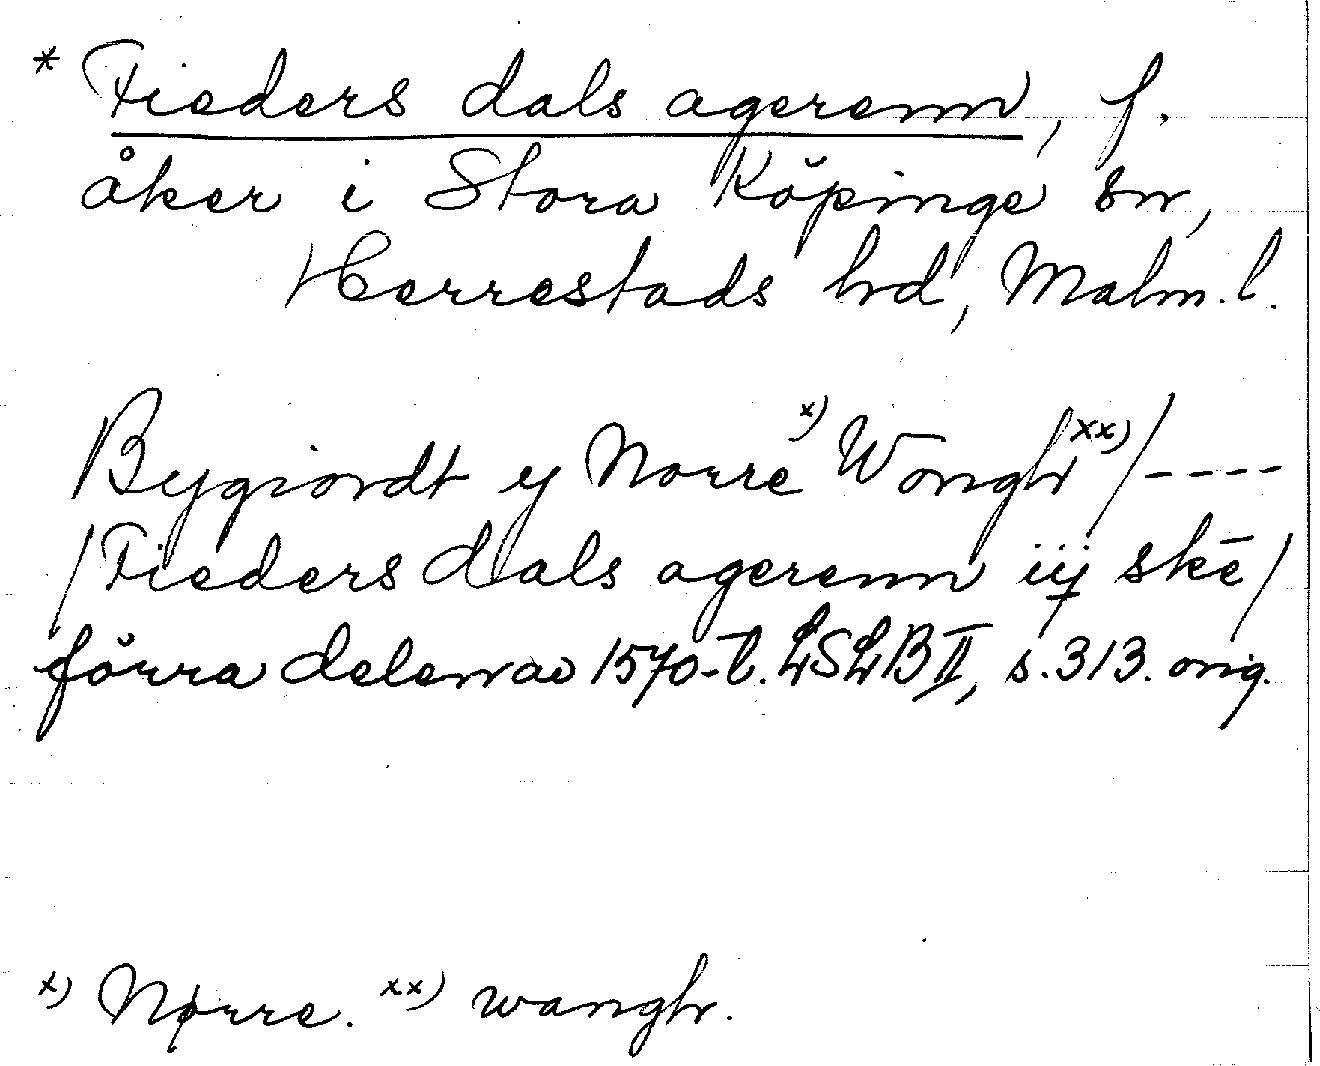 * Fieders dals agerenn, f.
åker i Stora Köpinge sn,
Herrestads hrd, Malm. l.
Bygiordt ij Norre x) Wongh xx) /----
/Fieders dals agerenn iij skē/
förra delen av 1570-t. LSLB II, s. 313. orig.
x) Nørre. xx) wangh.